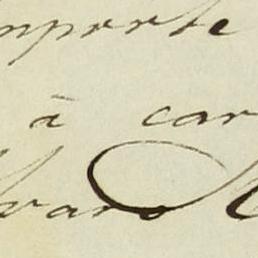 mporte
à car
varo